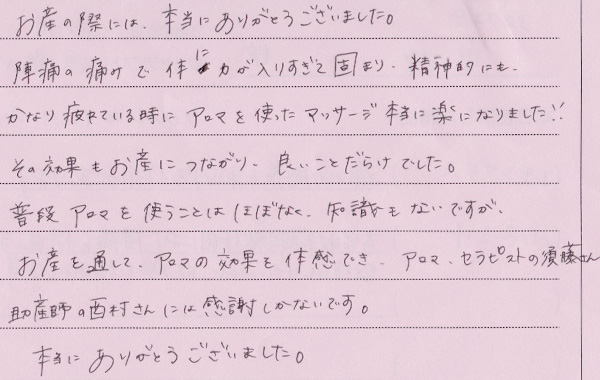 お産の際には、本当にありがとうございました。
陣痛の痛みで体に力が入りすぎて固まり、精神的にも、
かなり疲れている時にアロマを使ったマッサージ本当に楽になりました!!
その効果もお産につながり、良いことだらけでした。
普段アロマを使うことはほぼなく、知識もないですが、
お産を通して、アロマの効果を体感でき、アロマ、セラピストの須藤さん
助産師の西村さんには感謝しかないです。
本当にありがとうございました。